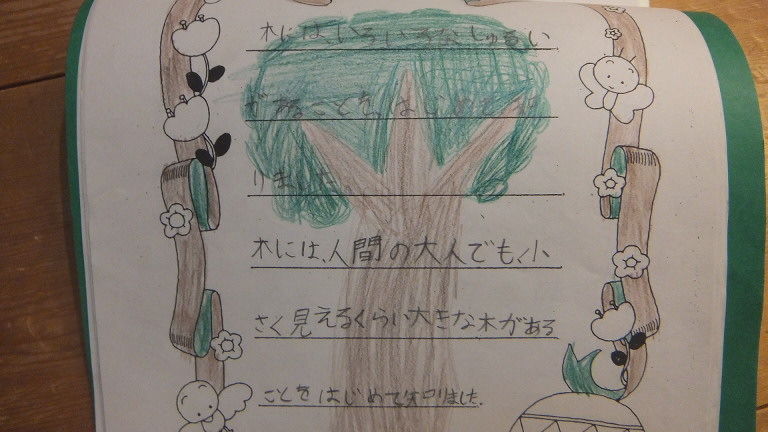 木には、いろいろなしゅるい
があることを、はじめて知
りました
木には、人間の大人でも、小
さく見えるくらい大きな木がある
ことをはじめて知りました。